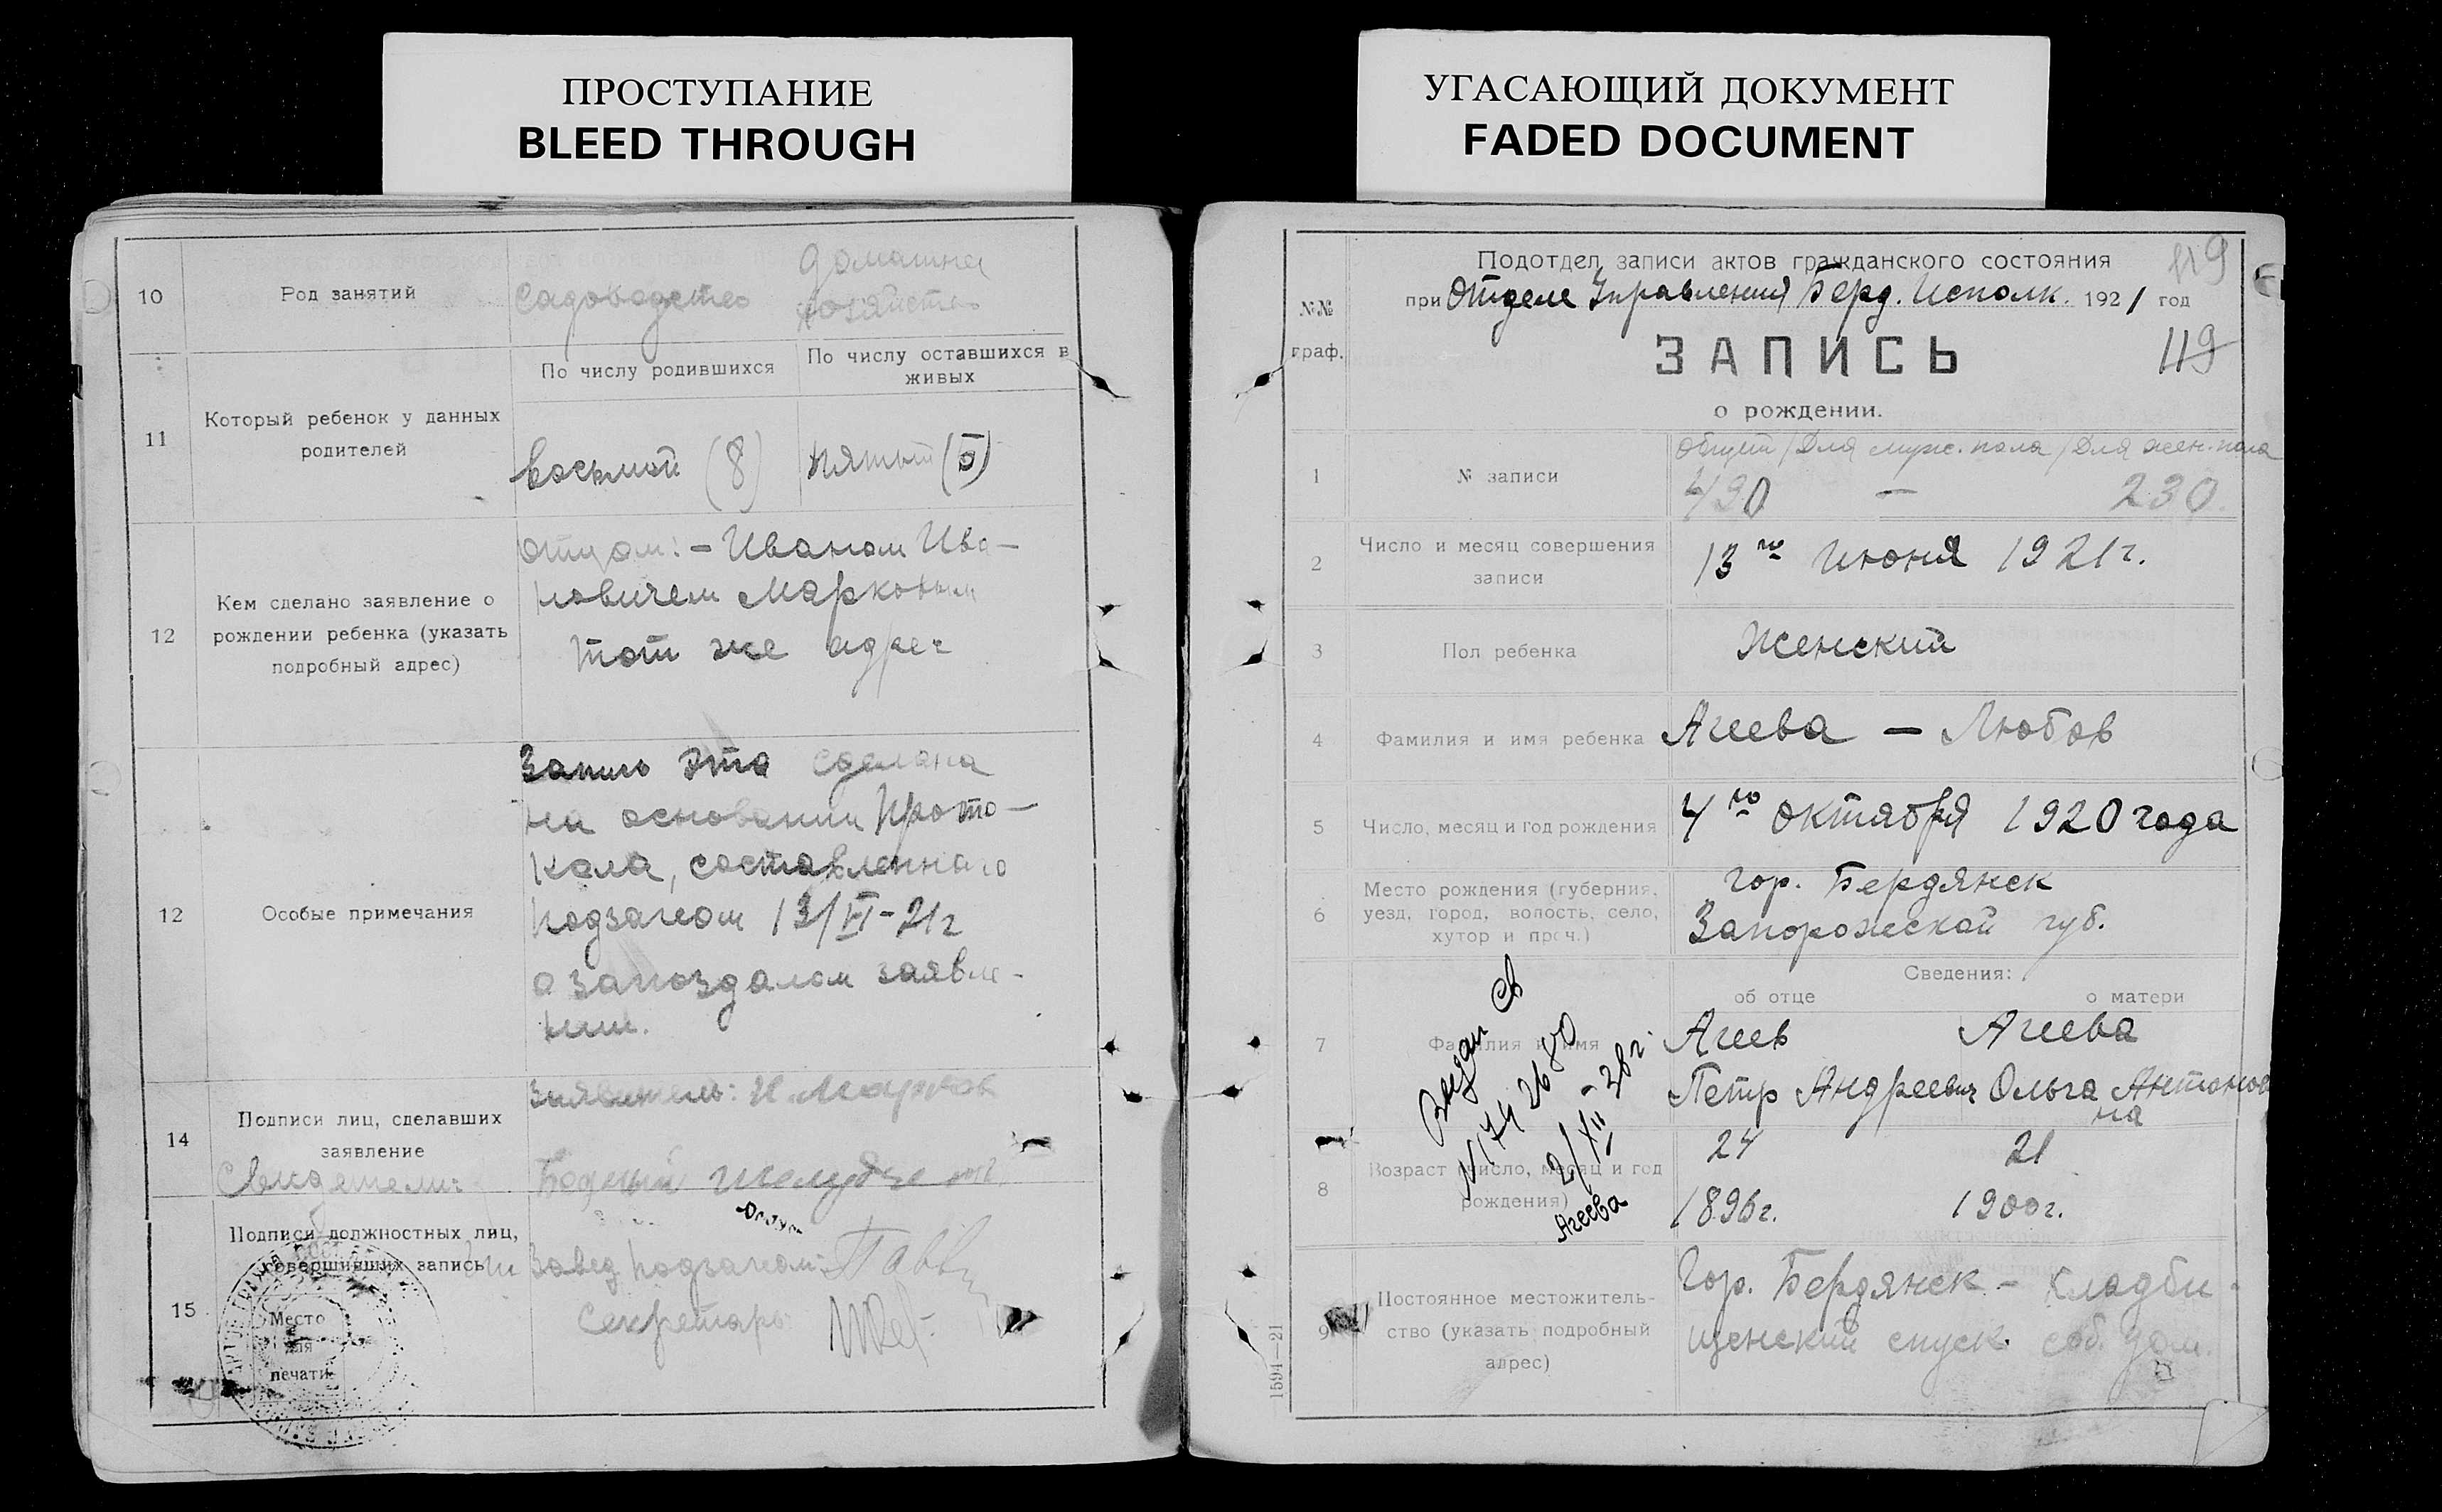 ПРОСТУПАНИЕ
BLEED THROUGH
10 Род занятий садоводство домашнее хозяйство
11 Который ребенок у данных родителей
По числу родившихся
По числу оставшихся в живых
восьмой (8) пятый (5)
12 Кем сделано заявление о
рождении ребенка (указать
подробный адрес)
отцом: – Иваном Ива–
новичем Марковым
тот же адрес
12 Особые примечания
Запись эта сделана
на основании Прото–
кола, составленнаго
подзагсом 13/VI–21г
о запоздалом заявле–
нии.
14 Подписи лиц, сделавших
заявление
Свидетели:
заявитель: И Марков
15 Подписи должностных лиц,
совершивших запись
Завед подзагсом:
Секретарь
Место
для
печати
УГАСАЮЩИЙ ДОКУМЕНТ
FADED DOCUMENT
119
Подотдел записи актов гражданского состояния
при Отделе Управления Берд. Исполк. 1921 год
№№
граф.
ЗАПИСЬ
119
о рождении.
Общий / Для муж. пола / Для жен. пола
1 № записи 430 – 230.
2 Число и месяц совершения
записи
13го Июня 1921г.
3 Пол ребенка Женский
4 Фамилия и имя ребенка Агеева – Любов
5 Число, месяц и год рождения 4го октября 1920 года
6 Место рождения (губерния,
уезд, город, волость, село,
хутор и проч.)
гор. Бердянск
Запорожской губ.
Сведения:
об отце о матери
7 Фамилия и имя
Агеев Агеева
Петр Андреевич Ольга Антонов
на
8 Возраст (число, месяц и год
рождения)
24 21
1896г. 1900г.
Выдан св
2/XII – 38г.
Агеева
9 Постоянное местожитель-
ство (указать подробный
адрес)
Гор. Бердянск – кладби-
щенский спуск. соб. дом.
1594—21